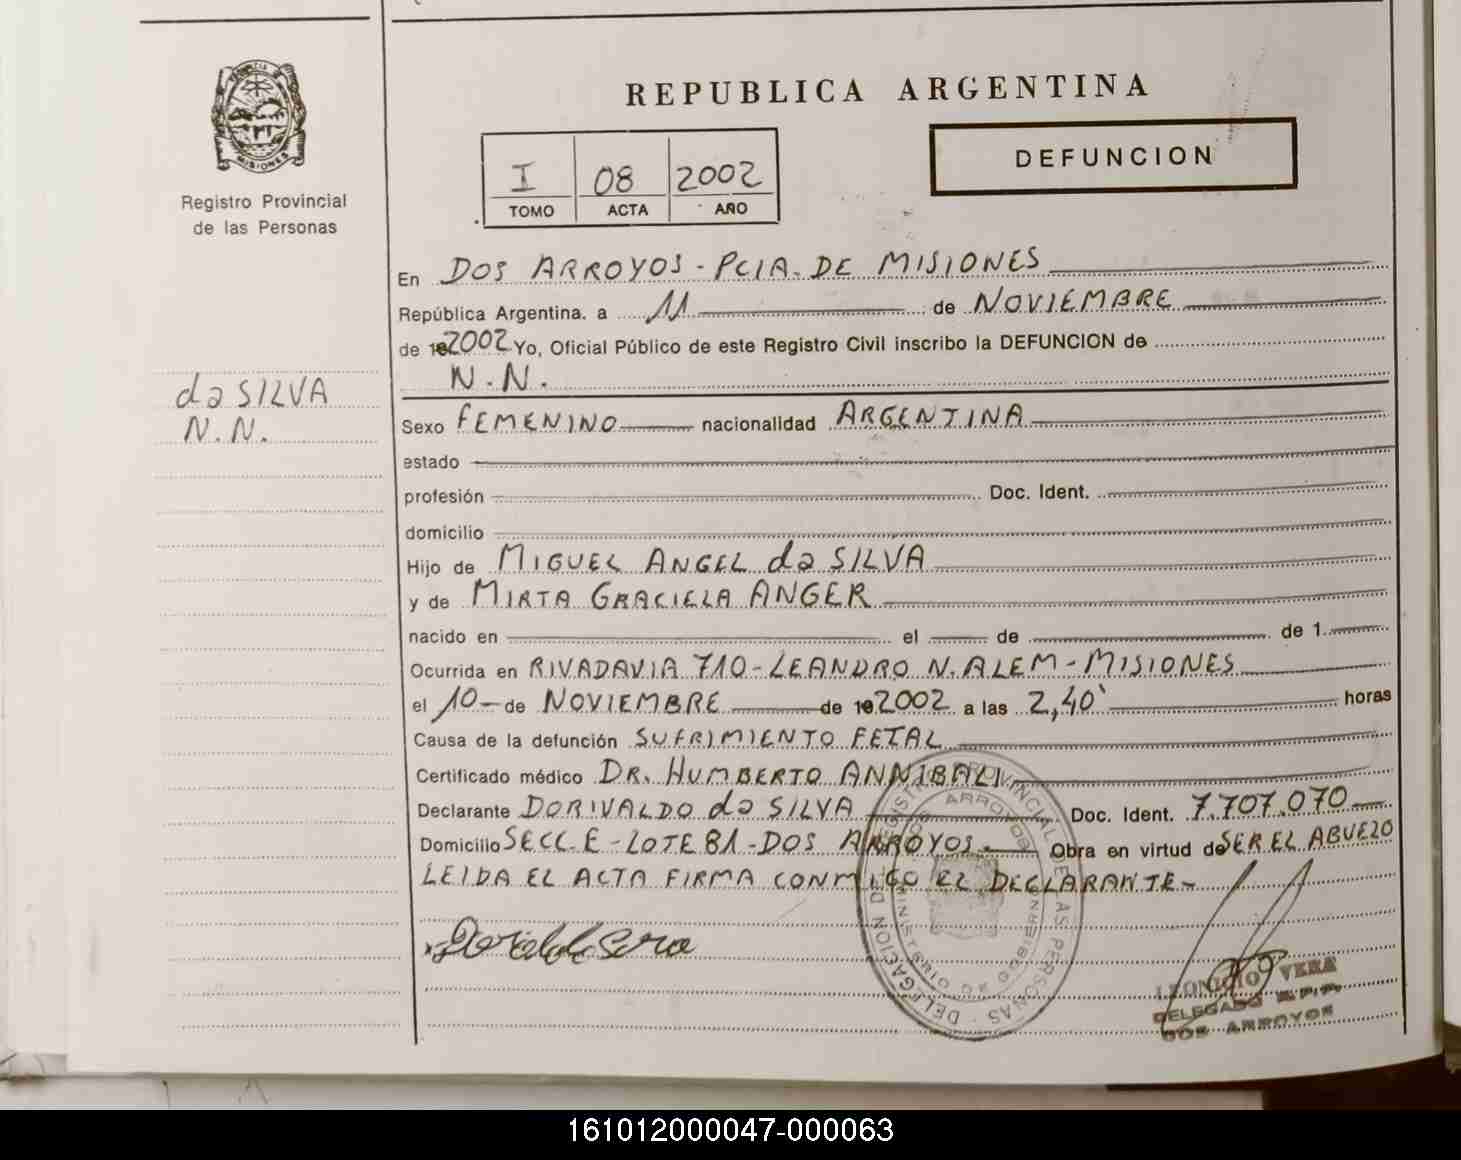 REPUBLICA ARGENTINA
MISIONES
Registro Provincial
de las Personas
I 08 2002
TOMO ACTA AÑO
DEFUNCION
da SILVA
N.N.
En DOS ARROYOS - PCIA. DE MISIONES
República Argentina. a 11 de NOVIEMBRE
de 2002 Yo, Oficial Público de este Registro Civil inscribo la DEFUNCION de
N.N.
Sexo FEMENINO nacionalidad ARGENTINA
estado
profesión Doc. Ident.
domicilio
Hijo de MIGUEL ANGEL da SILVA
y de MIRTA GRACIELA ANGER
nacido en el de de 1
Ocurrida en RIVADAVIA 710 - LEANDRO N. ALEM - MISIONES
el 10 - de NOVIEMBRE de 2002 a las 2,40' horas
Causa de la defunción SUFRIMIENTO FETAL
Certificado médico DR. HUMBERTO ANNIBALI
Declarante DORIVALDO da SILVA Doc. Ident. 7.707.070
Domicilio SECC. E - LOTE 81 - DOS ARROYOS. Obra en virtud de SER EL ABUELO
LEIDA EL ACTA FIRMA CONMIGO EL DECLARANTE -
DELEGACION DEL REGISTRO PROVINCIAL DE LAS PERSONAS
DOS ARROYOS
MINISTERIO DE GOBIERNO
VERA
DELEGADO
DOS ARROYOS
161012000047-000063